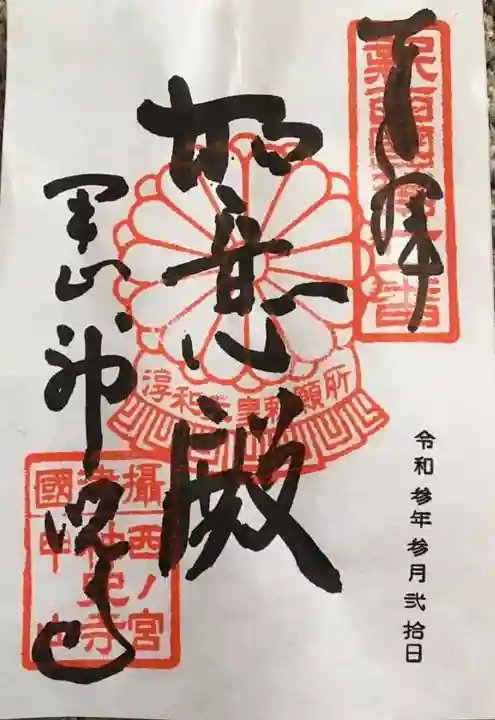 奉拝
如意殿
甲山 神呪寺
淳和天皇勅願所
攝津國
西ノ宮
神呪寺
甲山
令和参年参月弐拾日